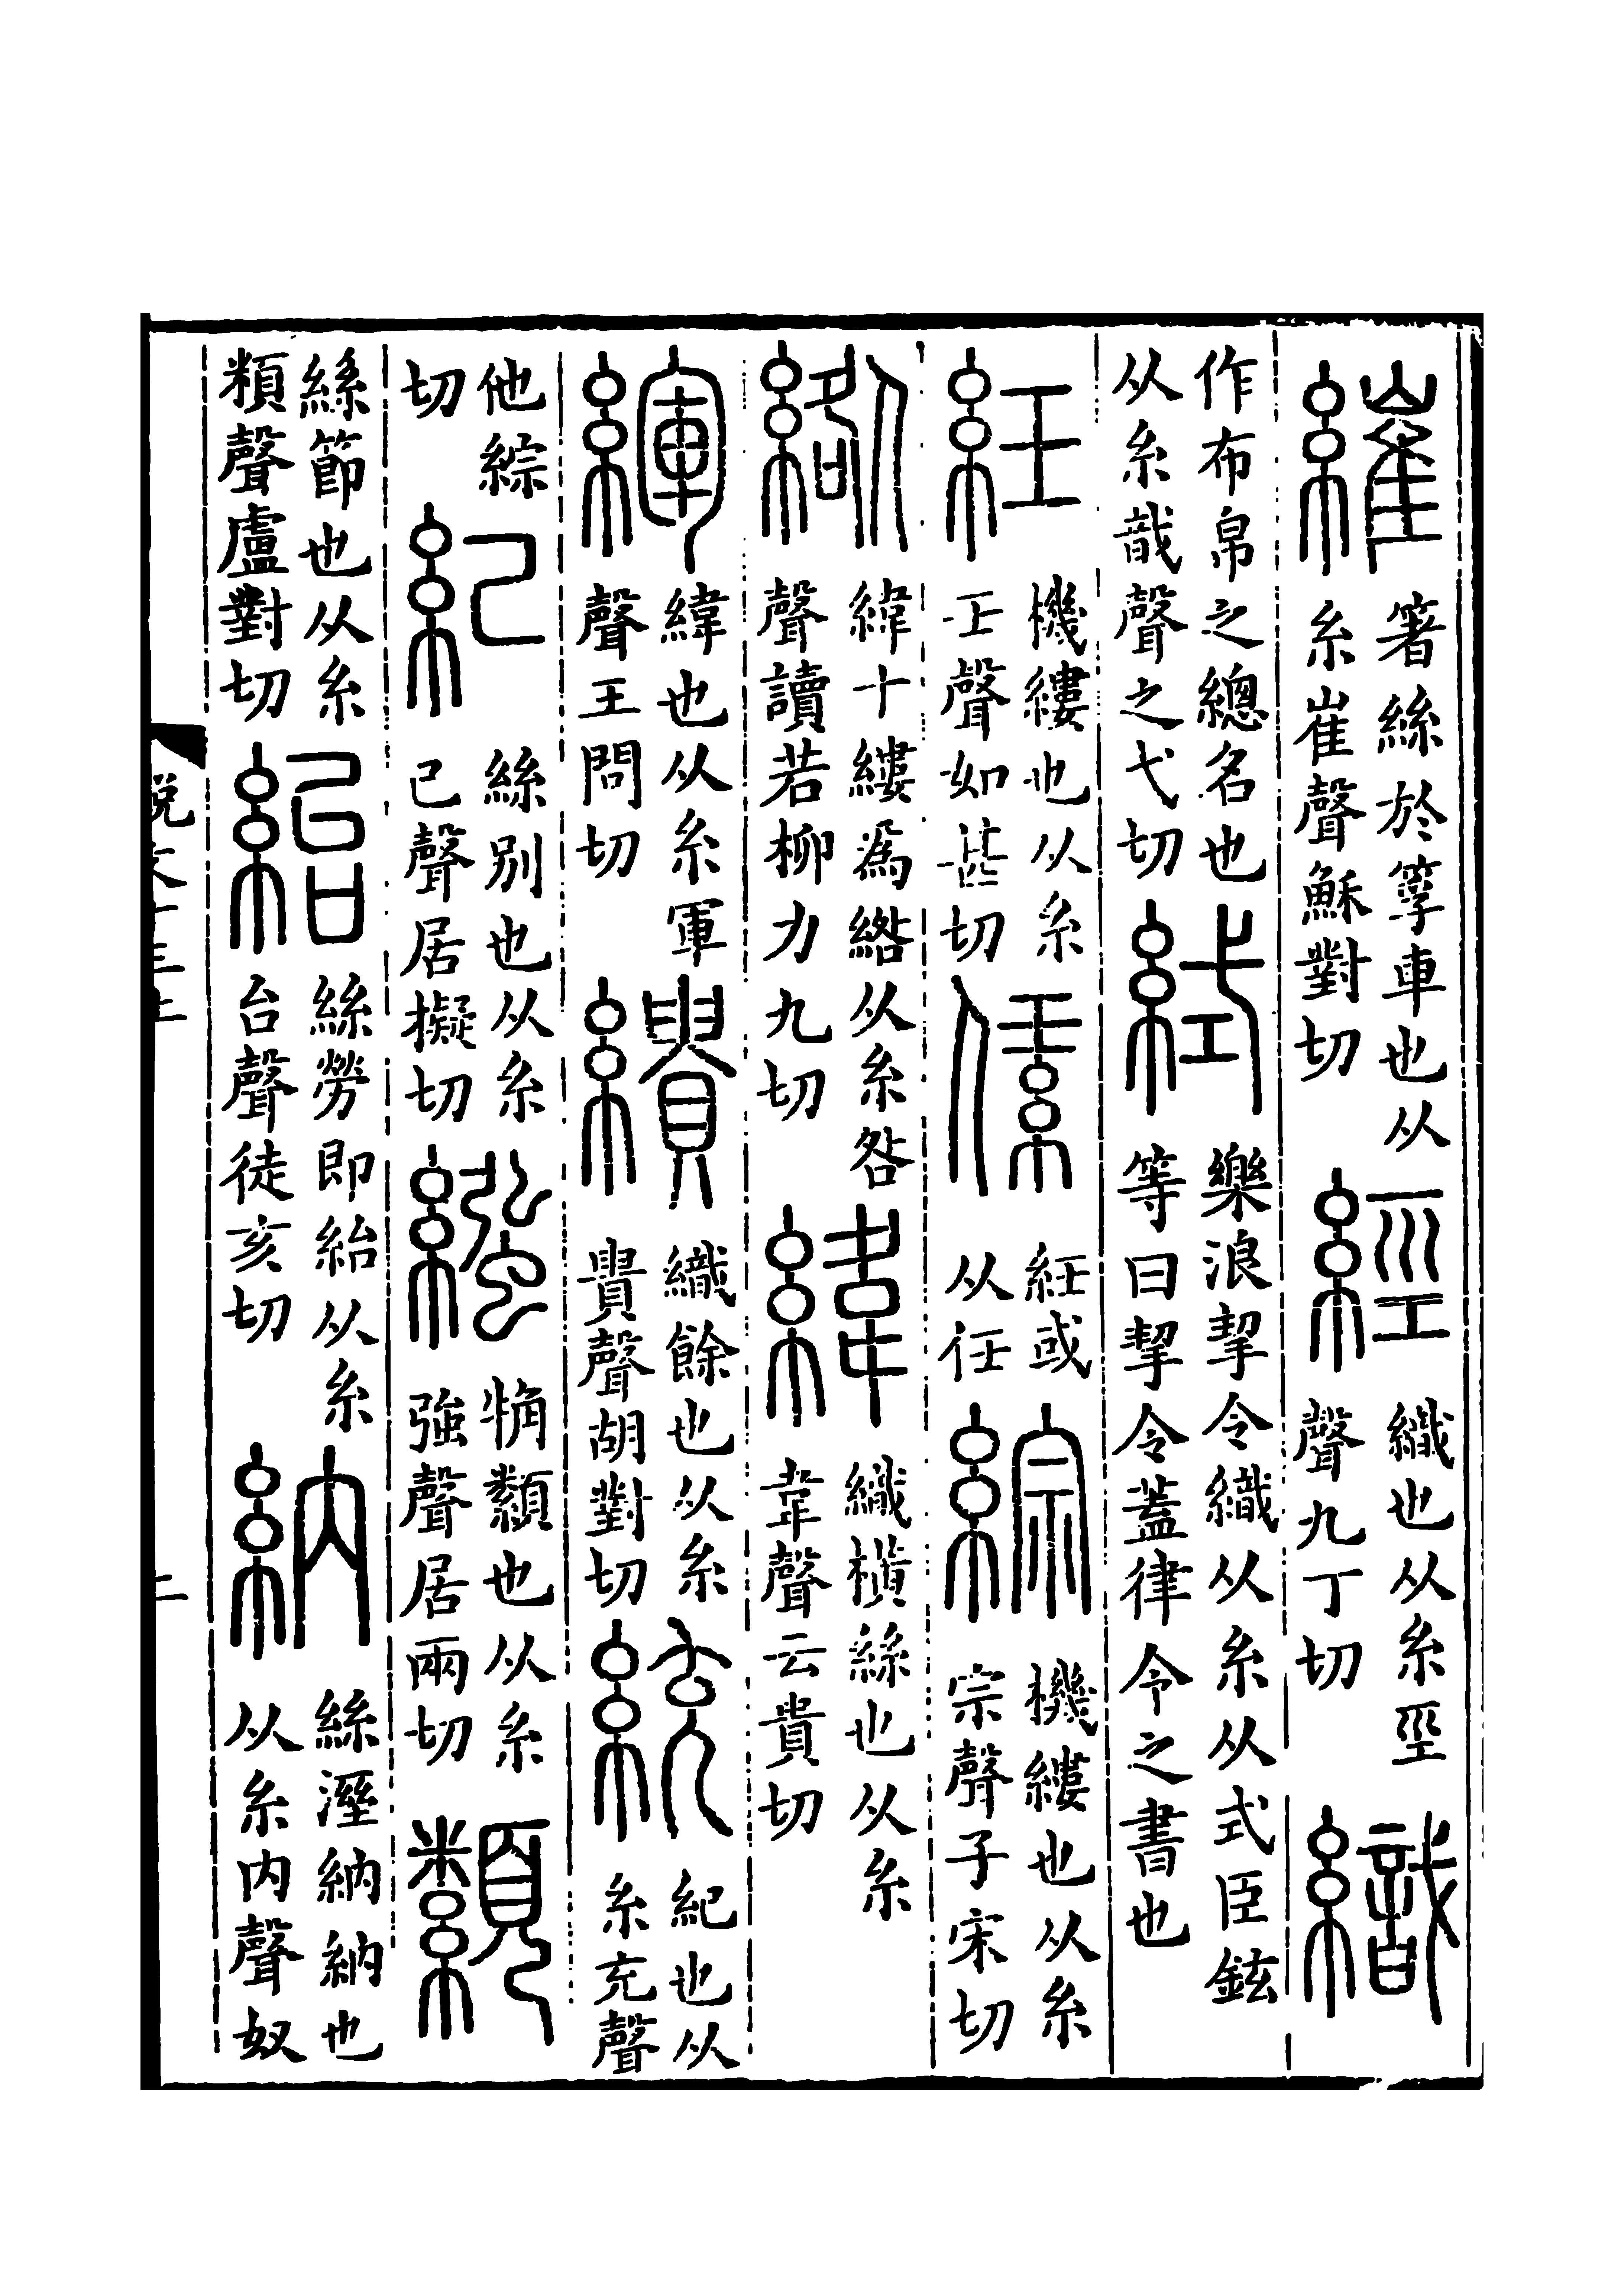 繀箸絲於筟車也从糸崔聲穌對切經織也从糸巠聲九丁切織
作布帛之總名也从糸戠聲之弋切𥿮樂浪挈令織从糸从式臣鉉等曰挈令蓋律令之書也
紝機縷也从糸壬聲如甚切䋕紝或从任綜機縷也从糸宗聲子宋切
綹緯十縷爲綹从糸咎聲讀若柳力九切緯織橫絲也从糸韋聲云貴切
緷緯也从糸軍聲王問切繢織餘也从糸貴聲胡對切統紀也从糸充聲
他綜切紀絲別也从糸己聲居擬切繈觕纇也从糸強聲居兩切纇
絲節也从糸頪聲盧對切紿絲勞即紿从糸台聲徒亥切納絲溼納納也从糸内聲奴
說文十三上 二